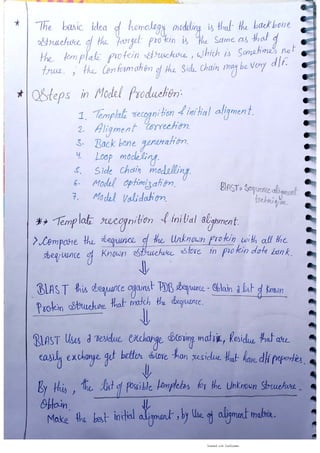 * The basic idea of homology modeling is that the backbone
structure of the target protein is the same as that of
the template protein structure, which is sometimes not
true, the conformation of the side chain may be very d/f.
* Steps in Model Production:
1. Template recognition & initial aligment.
2. Aligment correction.
3. Back bone generation.
4. Loop modeling.
5. Side chain modelling.
6. Model optimization.
7. Model Validation.
BLAST → Sequence alignment
technique.
* Template recognition & initial alignment.
>. Compare the sequence of the Unknown protein with all the
sequence of Known structure store in protein data bank.
⇓
BLAST this sequence against PDB sequence - Obtain a list of known
Protein structure that match the sequence.
⇓
BLAST Uses a residue exchange scoring matrix, Residue that are
easily exchange get better score than residue that have d/f properties.
⇓
By this, the list of possible templates for the Unknown structure.
Obtain. ⇓
Make the best initial aligment, by Use of aligment matrix.